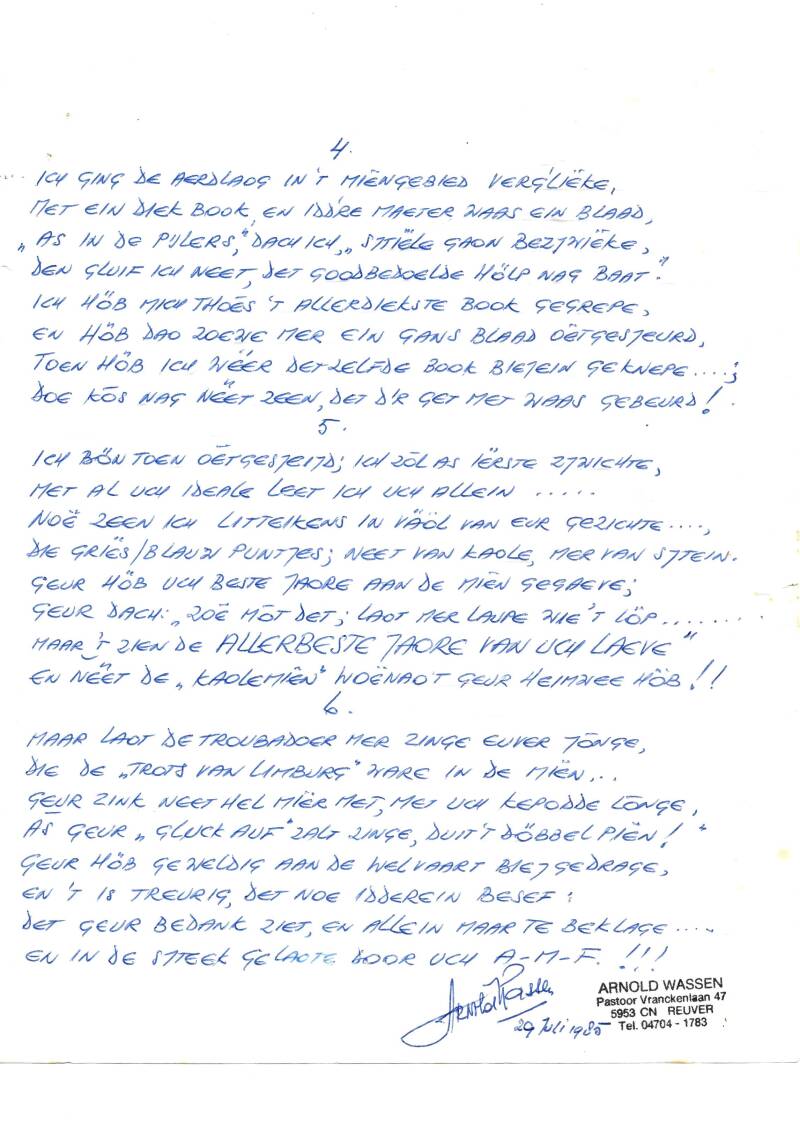 4.
ICH GING DE AERDLAOG IN 'T MIËNGEBIED VERG'LIËKE,
MET EIN DIEK BOOK, EN IDD'RE MAETER WAAS EIN BLAAD,
„AS IN DE PIJLERS," DACH ICH, „STIËLE GAON BEZJWIËKE,
DEN GLUIF ICH NEET, DET GOODBEDOELDE HÖLP NAG BAAT."
ICH HÖB MICH THOES 'T ALLERDIEKSTE BOOK GEGREPE,
EN HÖB DAO ZOEWE MER EIN GANS BLAAD OËTGESJEURD,
TOEN HÖB ICH WÉÉR DETZELFDE BOOK BIEJEIN GEKNEPE....;
DOE KÓS NAG NËËT ZEEN, DET D'R GET MET WAAS GEBEURD!
5.
ICH BÖN TOEN OËTGESJEIJD; ICH ZÓL AS IËRSTE ZJWICHTE,
MET AL UCH IDEALE LEET ICH UCH ALLEIN .....
NOË ZEEN ICH LITTEIKENS IN VÄÖL VAN EUR GEZICHTE....,
DIE GRIËS/BLAUW PUNTJES; NEET VAN KAOLE, MER VAN SJTEIN.
GEUR HÖB UCH BESTE JAORE AAN DE MIËN GEGAEVE;
GEUR DACH: „ZOË MÓT DET; LAOT MER LAUPE WIE 'T LÖP........
MAAR 'T ZIEN DE ALLERBESTE JAORE VAN UCH LAEVE"
EN NËËT DE „KAOLEMIËN" WOËNAO'T GEUR HEIMWEE HÖB!!
6.
MAAR LAOT DE TROUBADOER MER ZINGE EUVER JÓNGE,
DIE DE „TROTS VAN LIMBURG" WARE IN DE MIËN...
GEUR ZINK NEET HEL MIËR MET, MET UCH KEPODDE LÓNGE,
ÁS GEUR „GLUCK AUF" ZALT ZINGE, DUIT 'T DÖBBEL PIËN!"
GEUR HÖB GEWELDIG AAN DE WELVAART BIEJGEDRAGE,
EN 'T IS TREURIG, DET NOE IDDEREIN BESEF:
DET GEUR BEDANK ZIET, EN ALLEIN MAAR TE BEKLAGE.....
EN IN DE STEEK GELAOTE DOOR UCH A-M-F.!!!
Arnold Wassen
29 Juli 1985
ARNOLD WASSEN
Pastoor Vranckenlaan 47
5953 CN REUVER
Tel. 04704 - 1783